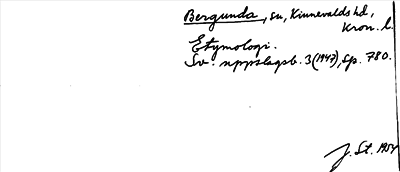 Bergunda, sn, Kinnevalds hd,
Kron. l.
Etymologi.
Sv. uppslagsb. 3 (1947), sp. 780.
J. St. 1954